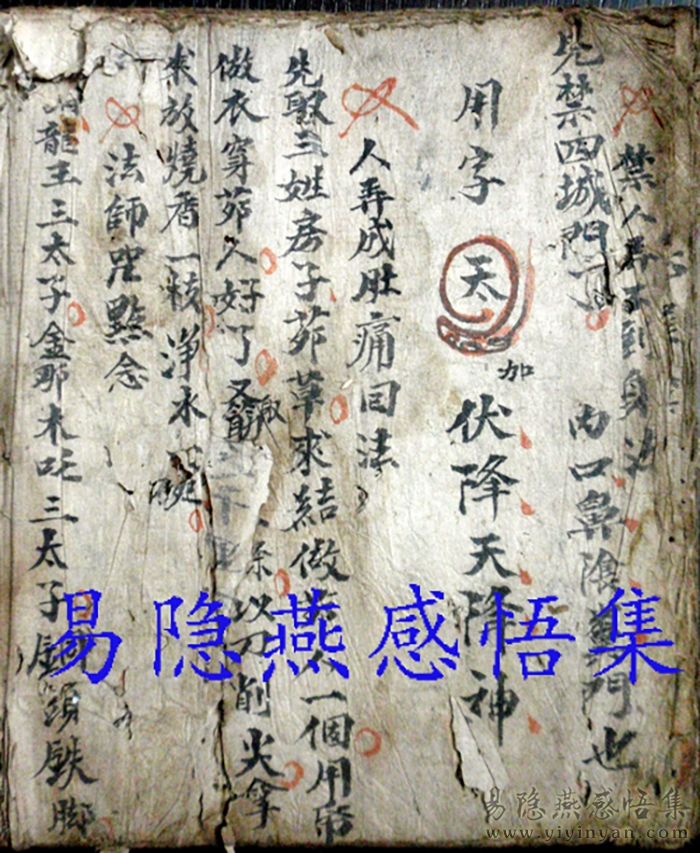 禁人弄不到身法
先禁四城門 内口鼻陰門也
用字 天 加 伏降天降神
人弄成肚痛回法
先取三姓房子茆草求結做茆人一個用
做衣穿茆人好了又 以刀削火拿
求放燒香一枝淨水碗
法師咒點念
龍王三太子金那木吒三太子銅頭鉄脚
易隐燕感悟集
易隐燕感悟集
www.yiyinyan.com